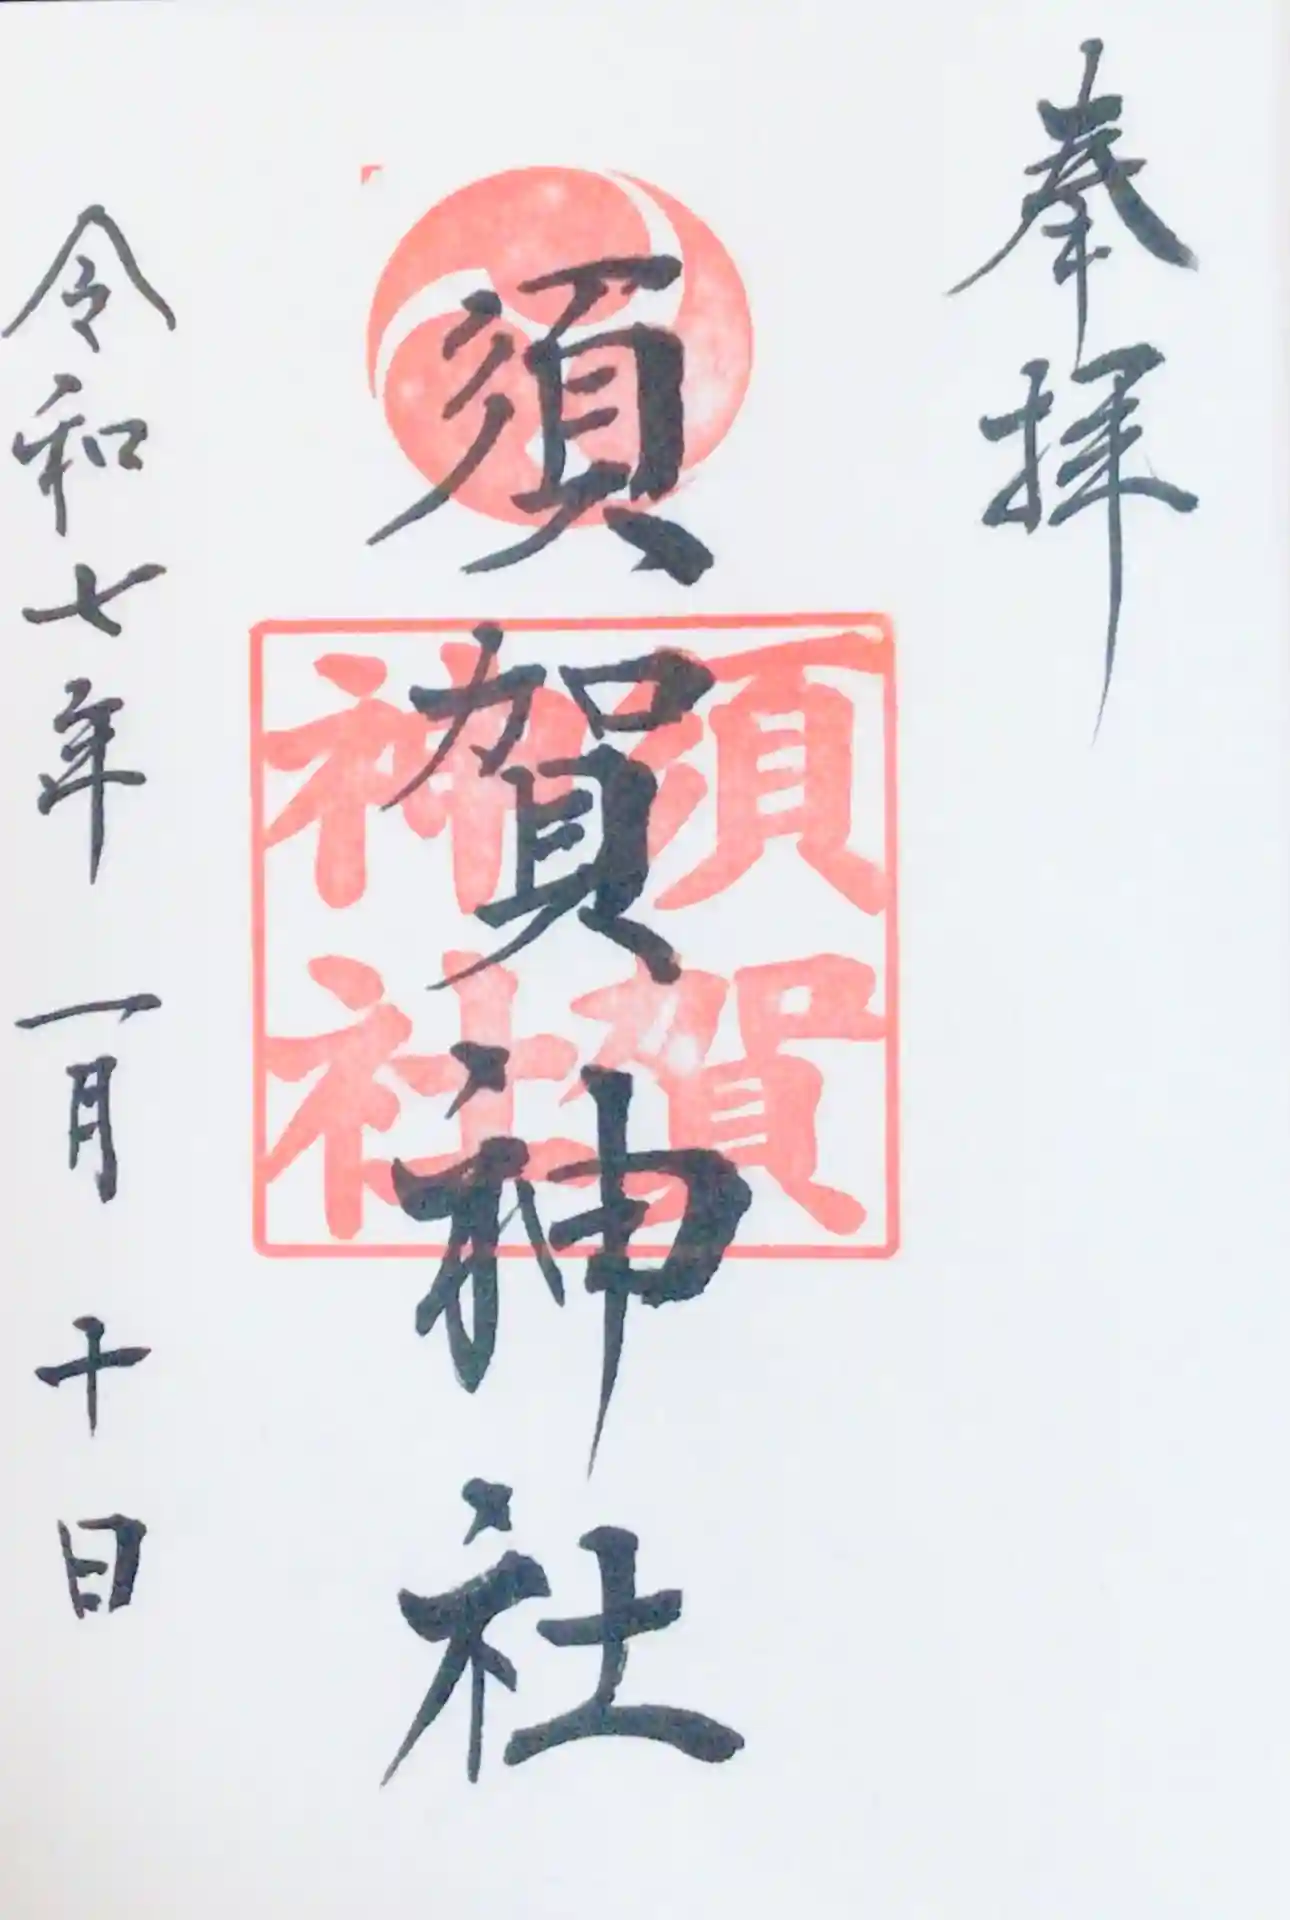 奉拝
須賀神社
須賀
神社
令和七年一月十日